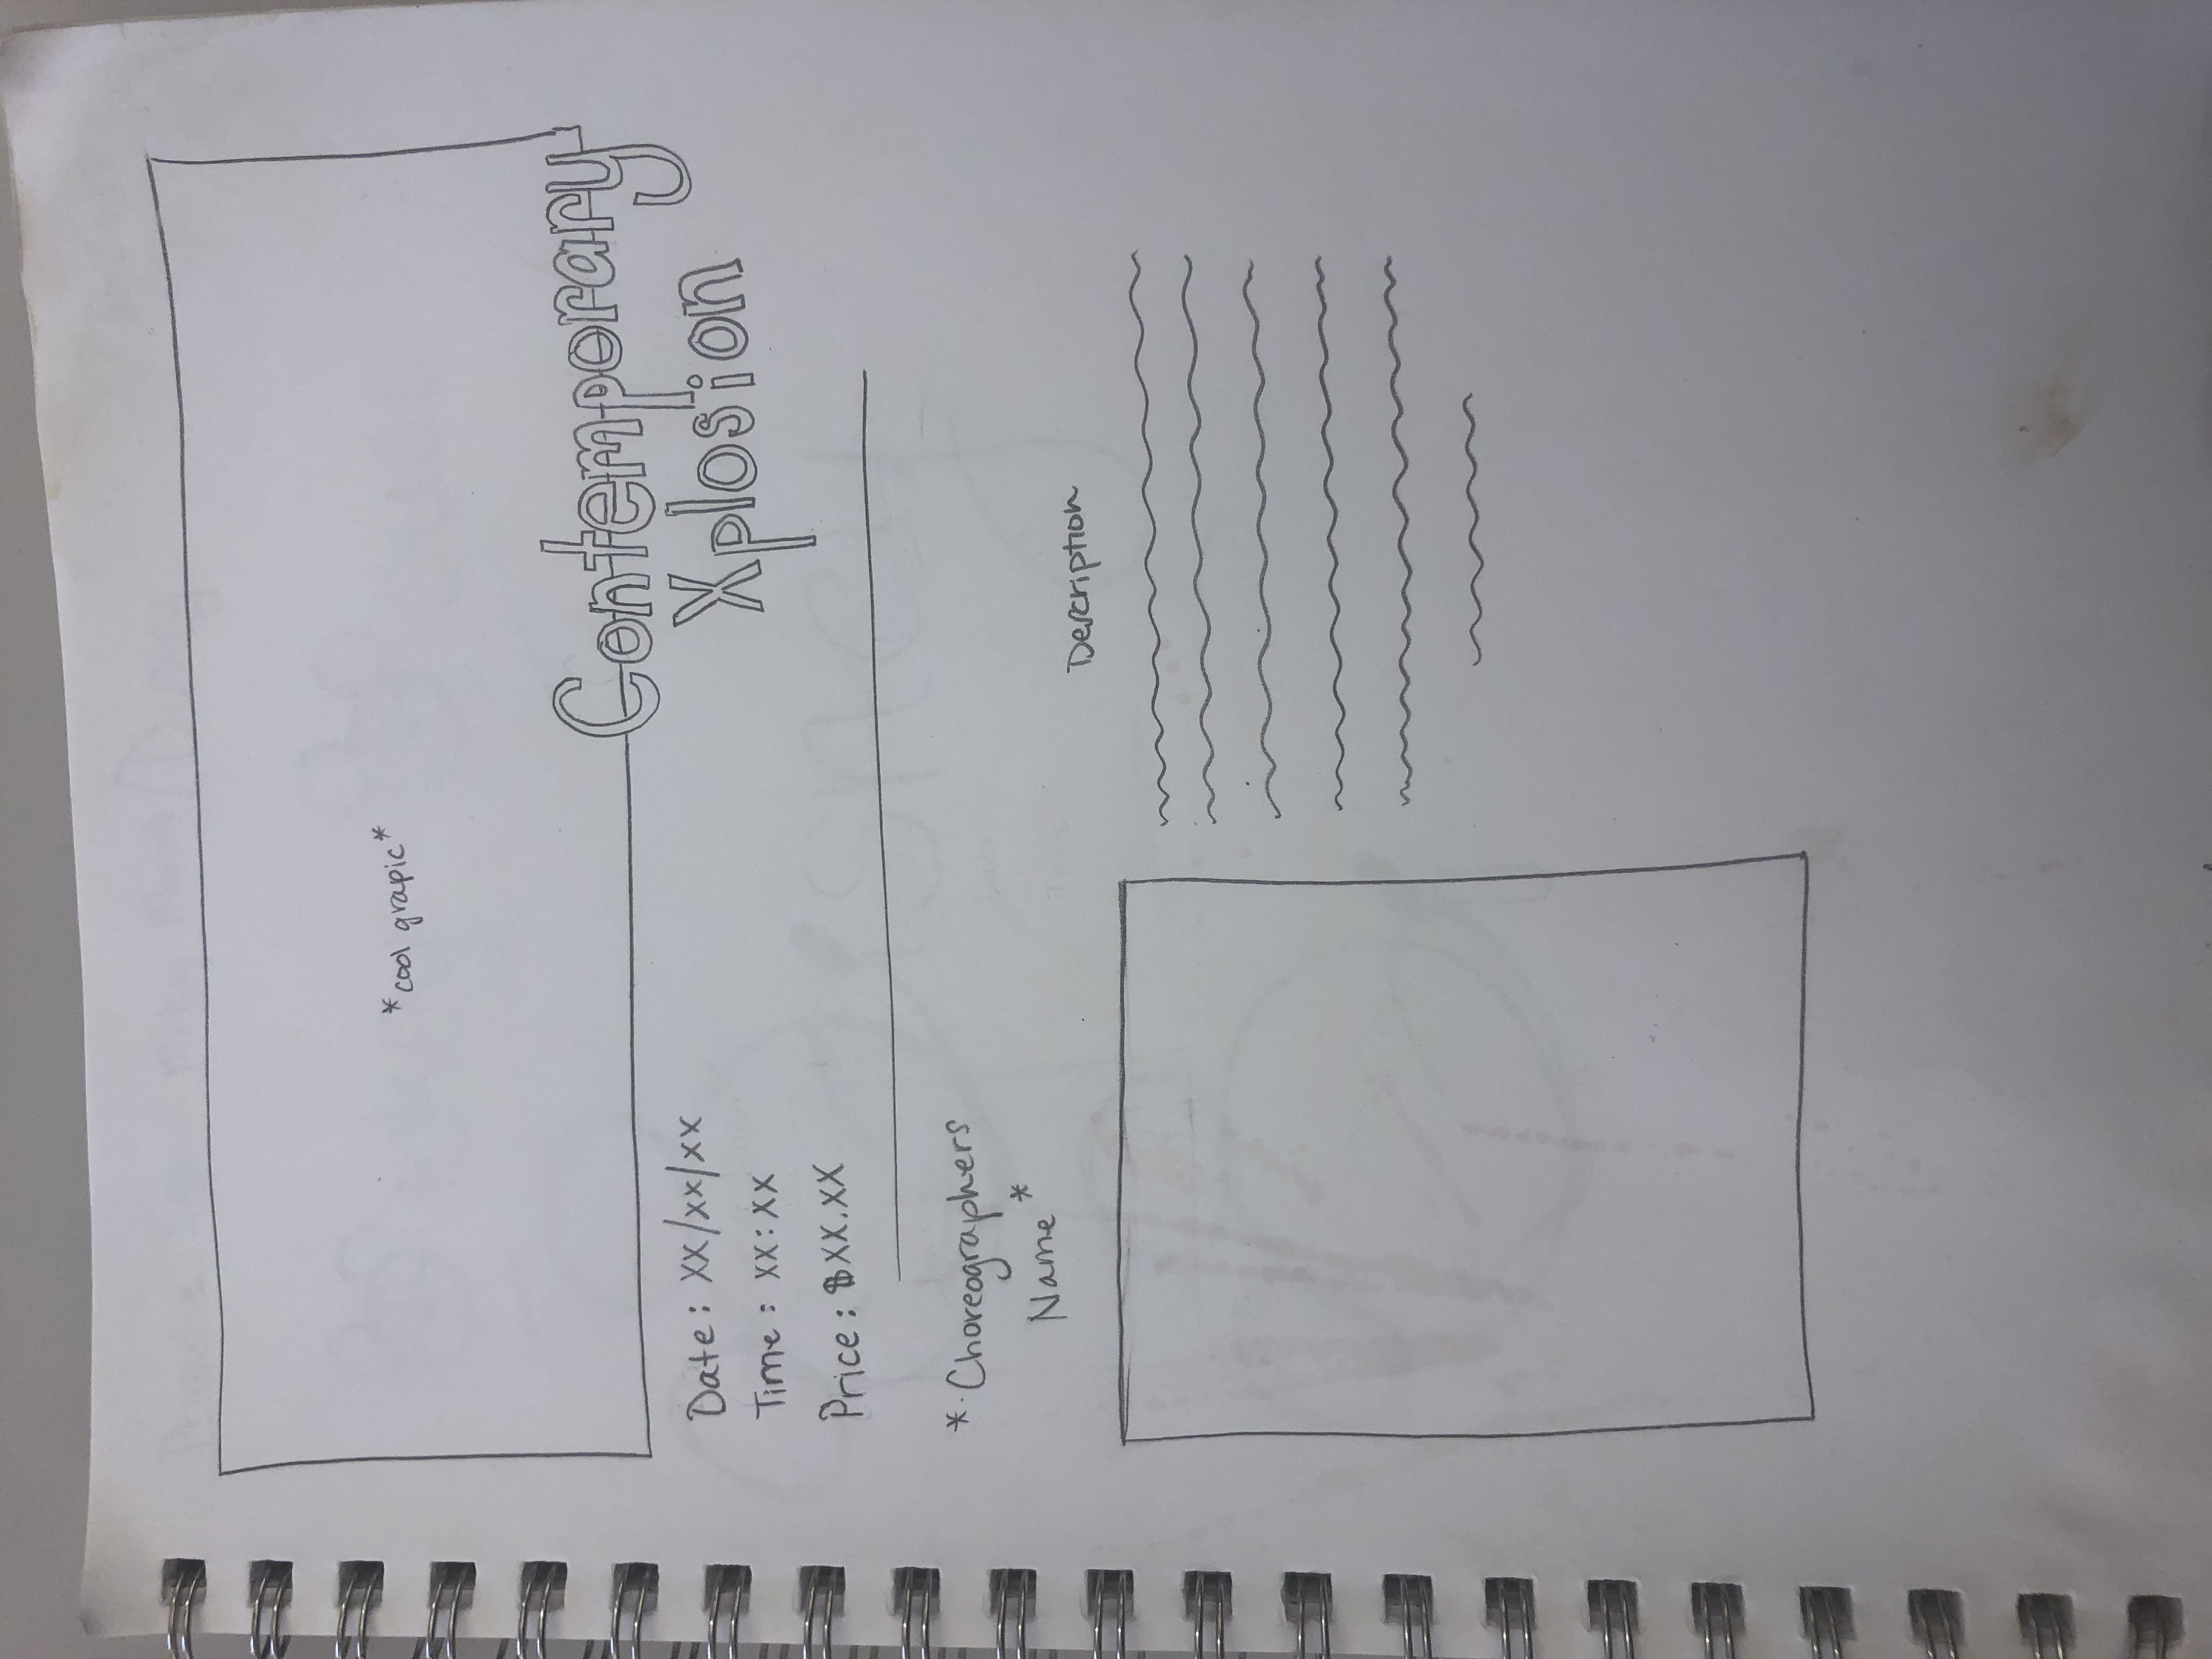 *cool grapic*
Contemporary
Xplosion
Date: XX/XX/XX
Time: XX:XX
Price: $XX.XX
* Choreographers
Name *
Description